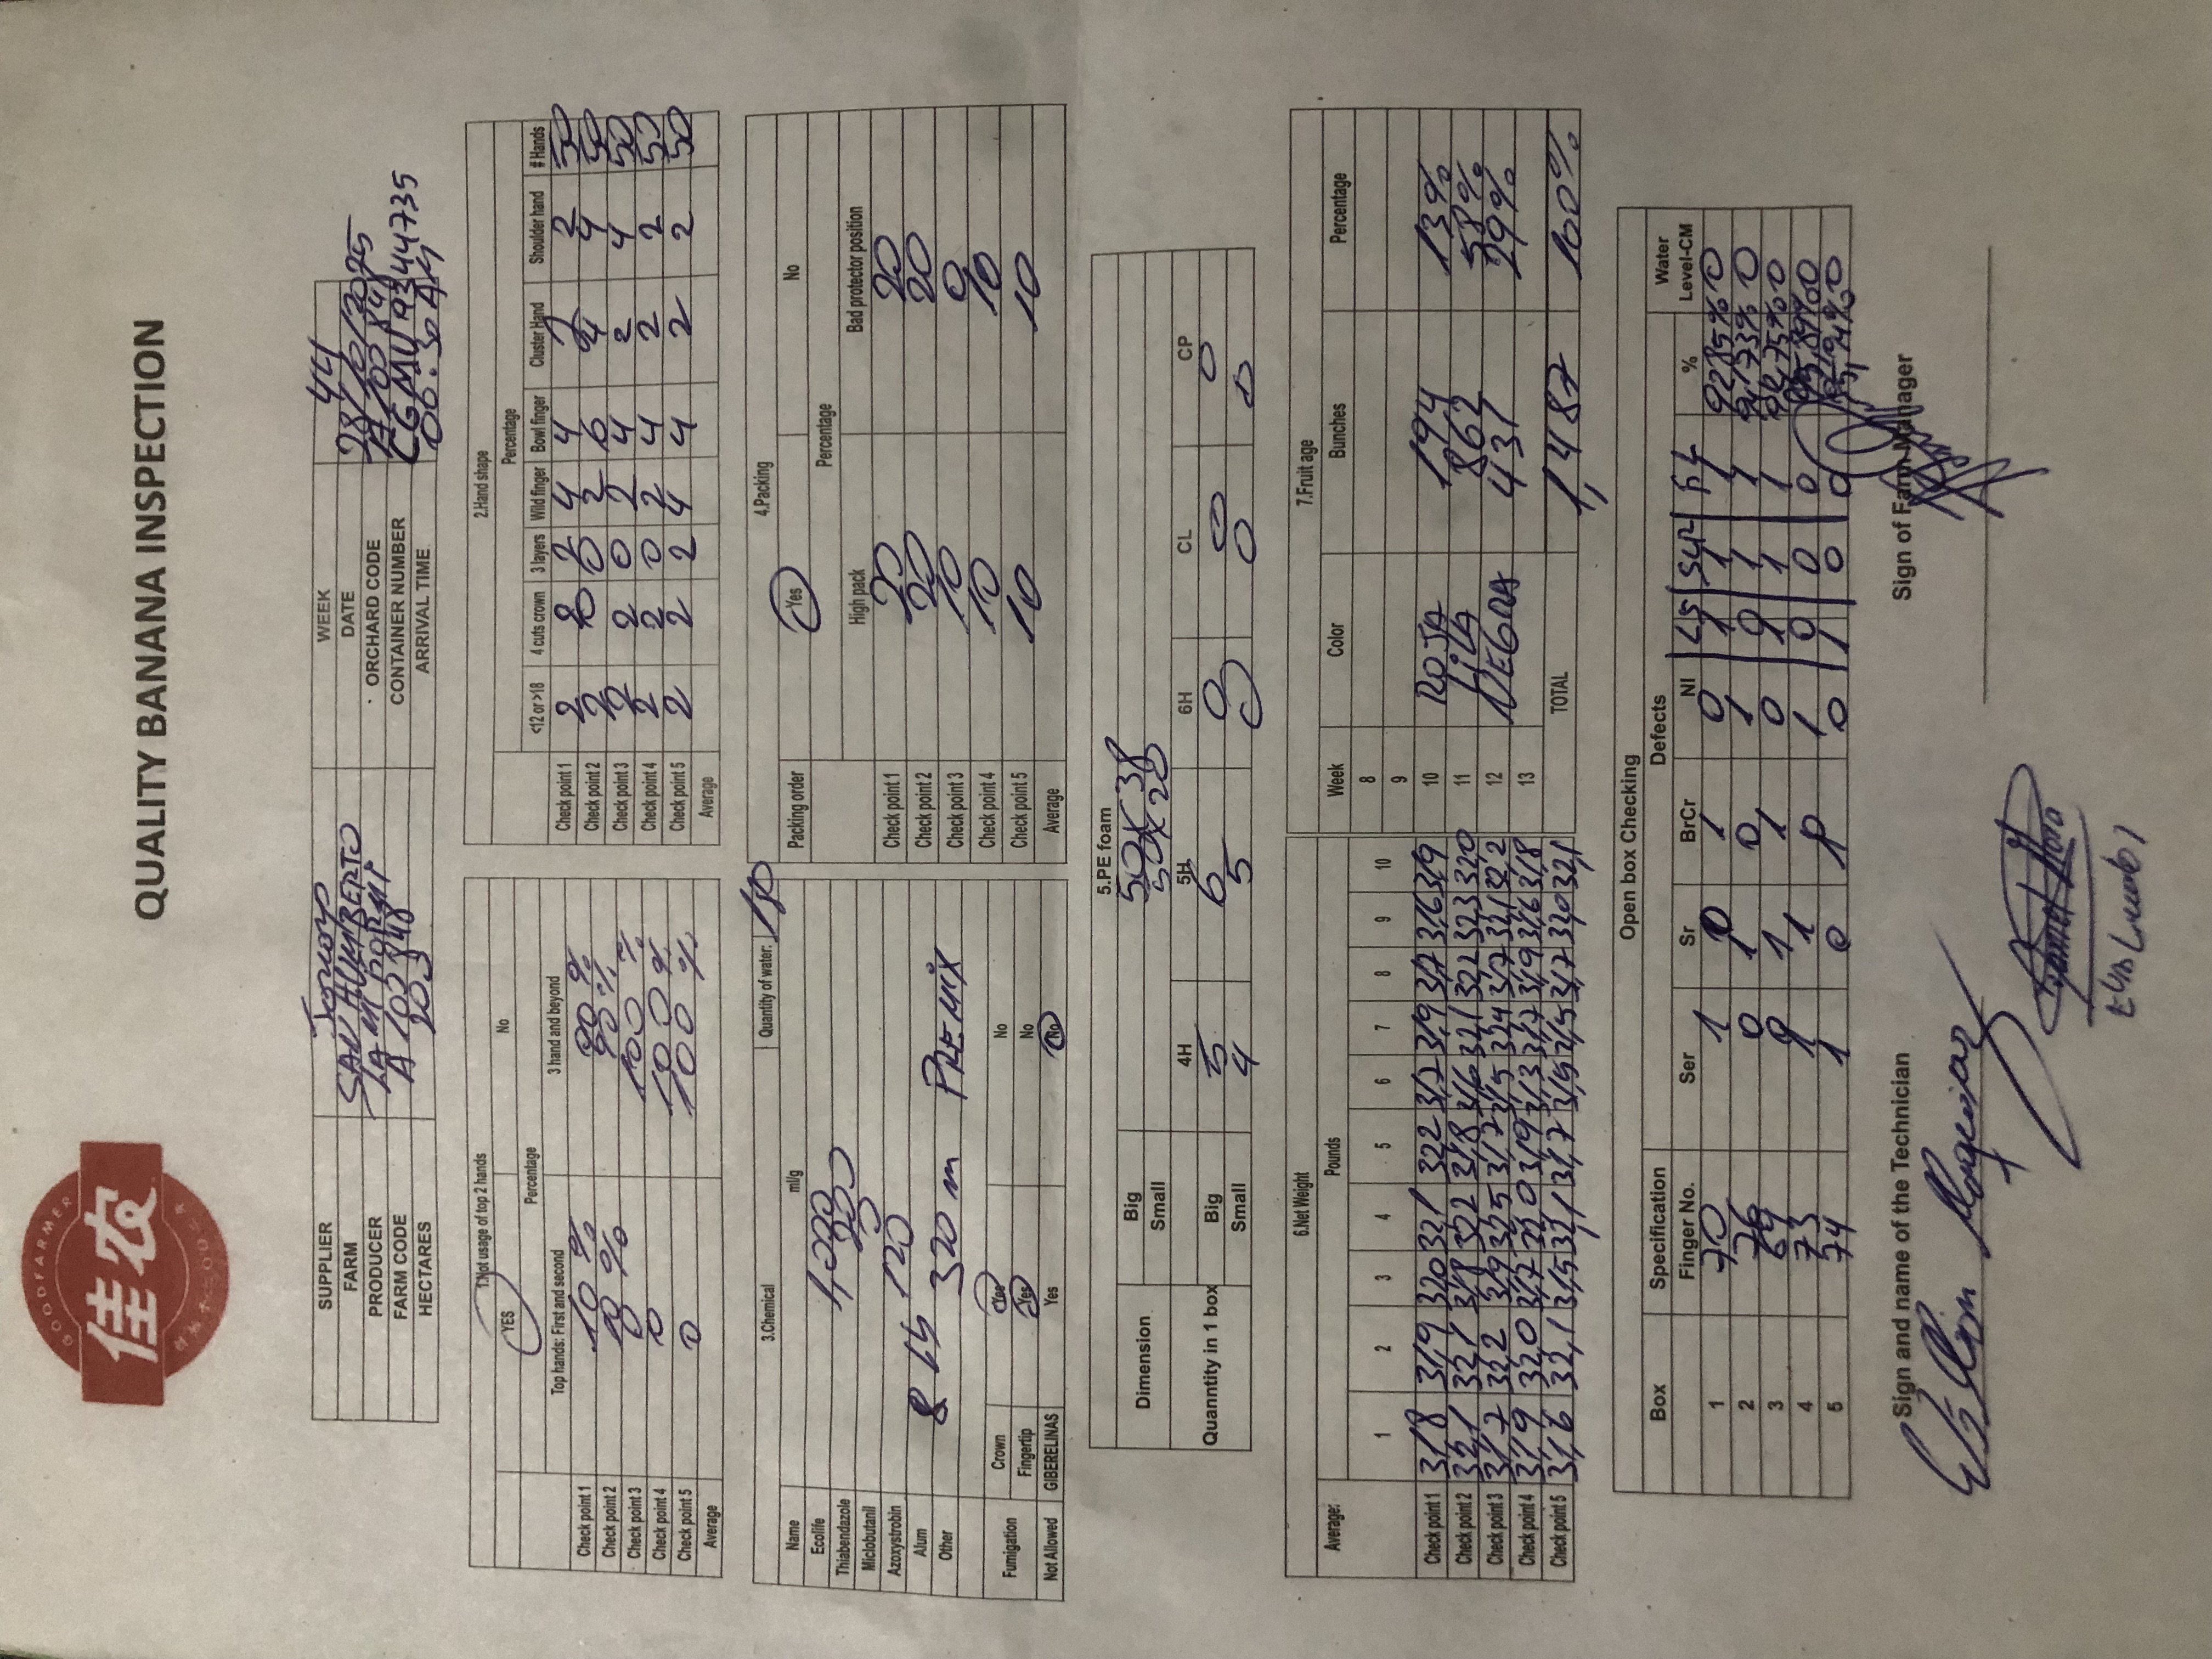 GOODFARMER
佳农
QUALITY BANANA INSPECTION
SUPPLIER WEEK 44
FARM SAN HUMBERTO DATE 28/10/2025
PRODUCER ORCHARD CODE A102848
FARM CODE A102848 CONTAINER NUMBER CGMU 9344735
HECTARES 203 ARRIVAL TIME 06:30 AM
1.Not usage of top 2 hands
YES No
Percentage
Top hands: First and second 3 hand and beyond
Check point 1 10% 90%
Check point 2 10% 90%
Check point 3 0 100%
Check point 4 0 100%
Check point 5 0 100%
Average
2.Hand shape
Percentage
<12 or >18 4 cuts crown 3 layers Wild finger Bowl finger Cluster Hand Shoulder hand # Hands
Check point 1 2 2 2 4 4 2 2 50
Check point 2 2 0 2 6 4 4 50
Check point 3 2 2 0 2 4 2 4 50
Check point 4 2 2 0 2 4 2 2 50
Check point 5 2 2 2 4 4 2 2 50
Average
3.Chemical Quantity of water: 180
Name ml/g
Ecolife 1,000
Thiabendazole 300
Miclobutanil 0
Azoxystrobin 120
Alum 8 lb
Other 320 m PREMIX
Fumigation Crown Yes No
Fingertip Yes No
Not Allowed GIBERELINAS Yes No
4.Packing
Packing order Yes No
Percentage
High pack Bad protector position
Check point 1 20 20
Check point 2 20 20
Check point 3 10 0
Check point 4 10 10
Check point 5 10 10
Average
5.PE foam
Dimension Big 50x38
Small 50x20
4H 5H 6H CL CP
Quanntity in 1 box Big 5 6 0 0 0
Small 4 5 0 0 0
6.Net Weight
Average: Pounds
1 2 3 4 5 6 7 8 9 10
Check point 1 31,8 31,9 320 32,1 322 31,7 31,9 31,7 31,6 31,9
Check point 2 32,1 32,1 31,8 322 31,8 31,6 32,1 322 323 320
Check point 3 31,7 322 31,9 325 31,7 31,5 324 31,7 32,1 32,2
Check point 4 31,9 320 31,7 320 31,9 31,3 31,7 31,9 31,6 31,8
Check point 5 31,6 32,1 31,5 32,1 31,7 31,5 31,5 31,7 320 32,1
7.Fruit age
Week Color Bunches Percentage
8
9
10 ROJA 194 13%
11 LILA 862 58%
12 NEGRA 431 29%
13
TOTAL 1,487 100%
Open box Checking
Box Specification Defects Water
Finger No. Ser Sr BrCr NI LS SUR FL % Level-CM
1 70 1 0 1 0 1 1 1 92,85% 0
2 76 0 1 0 1 0 1 1 94,73% 0
3 69 0 1 1 0 1 1 1 92,75% 0
4 73 1 1 0 1 0 0 0 95,89% 0
5 74 1 0 1 0 1 0 0 0
Sign and name of the Technician Sign of Farm Manager